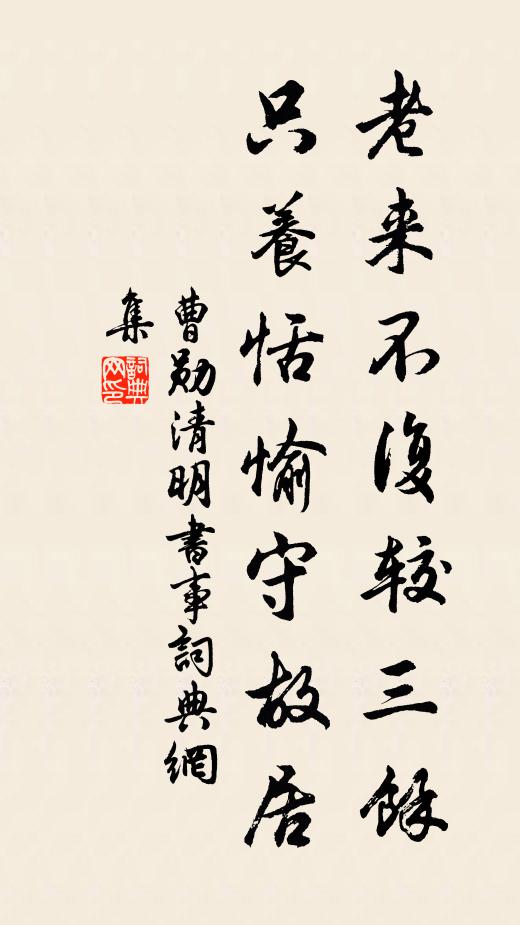 老来不復较三餘
只養恬愉守故居
曹勛清明書事詞典網
集
詞典网印